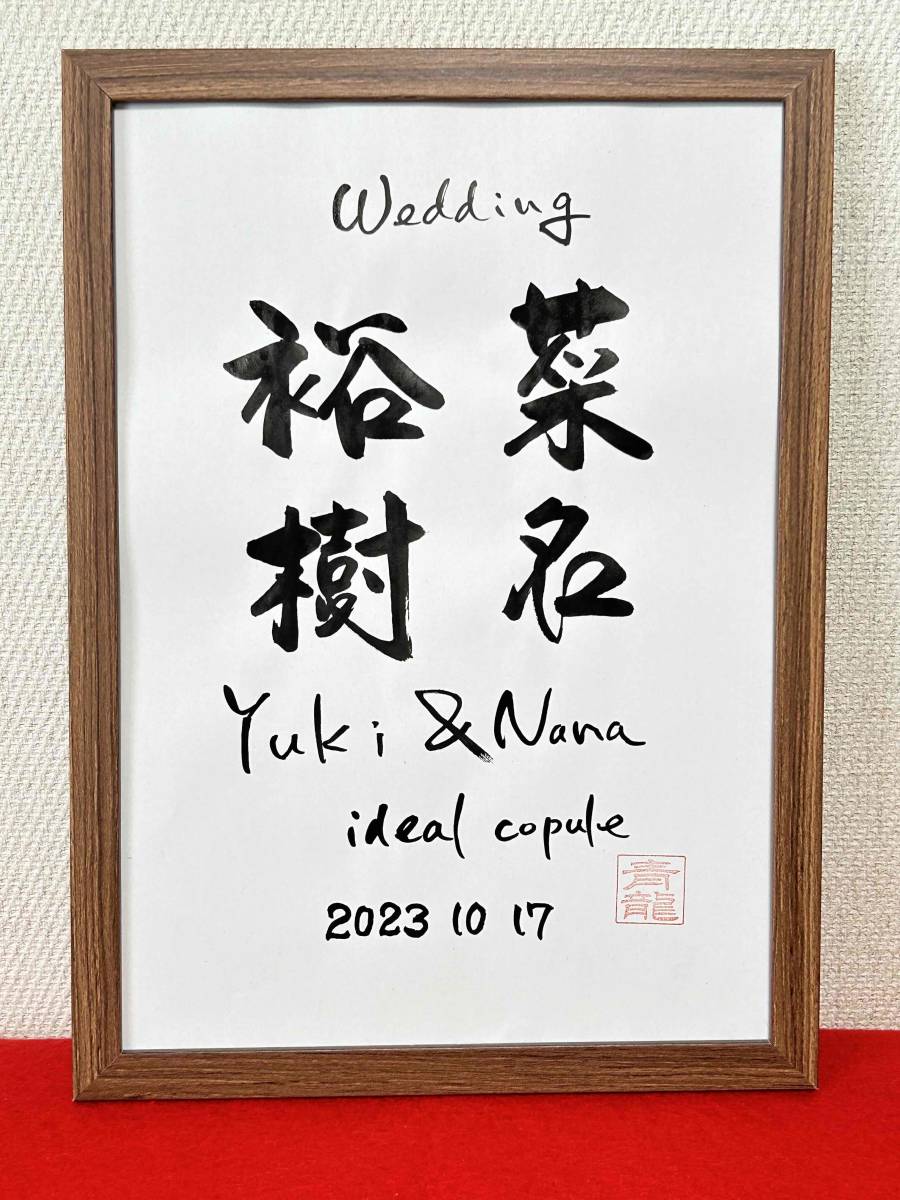 Wedding
裕樹
菜名
Yuki & Nana
ideal copule
2023 10 17
斉龍